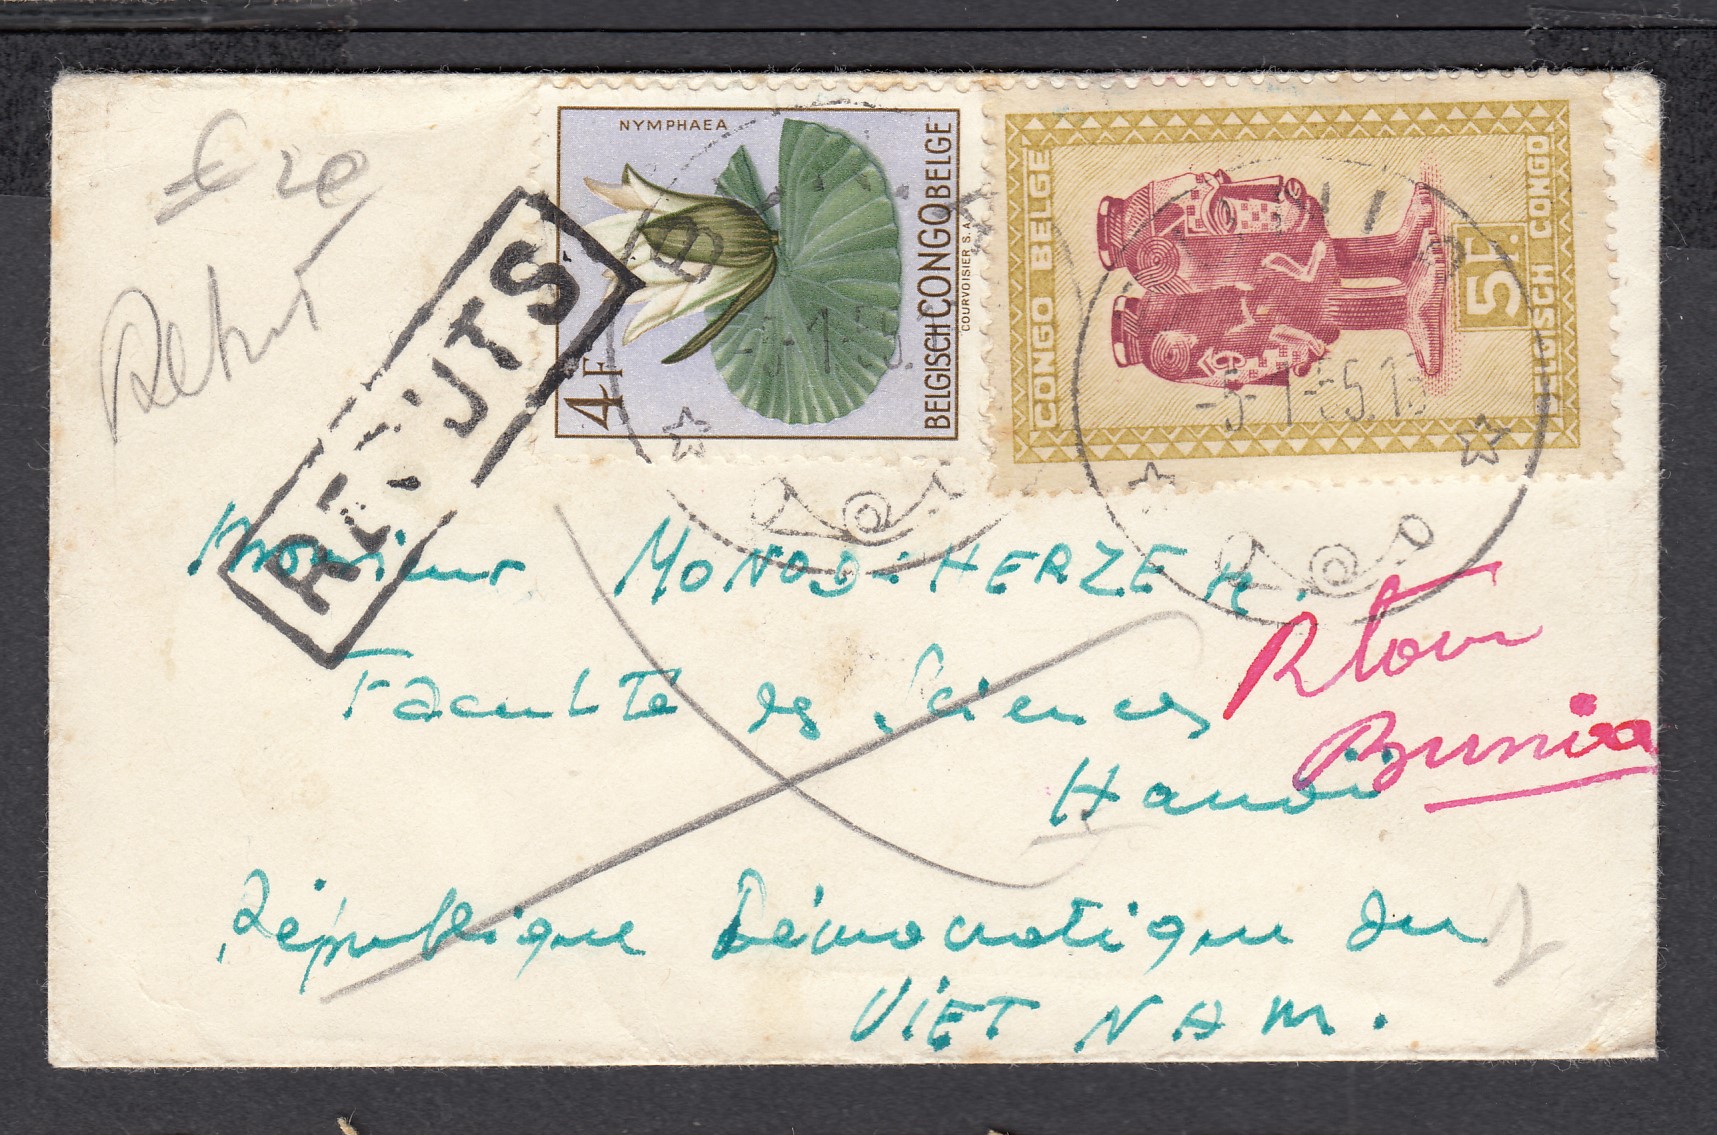 £ 20
Rebut
REBUTS
NYMPHAEA
4F
BELGISCH CONGO BELGE
COURVOISIER S.A.
CONGO BELGE
5F.
BELGISCH CONGO
-5-1-55.15
Monsieur MONOD-HERZEN.
Faculté des Sciences
Hanoï
République Démocratique du
VIET NAM.
Rtour
Bunia